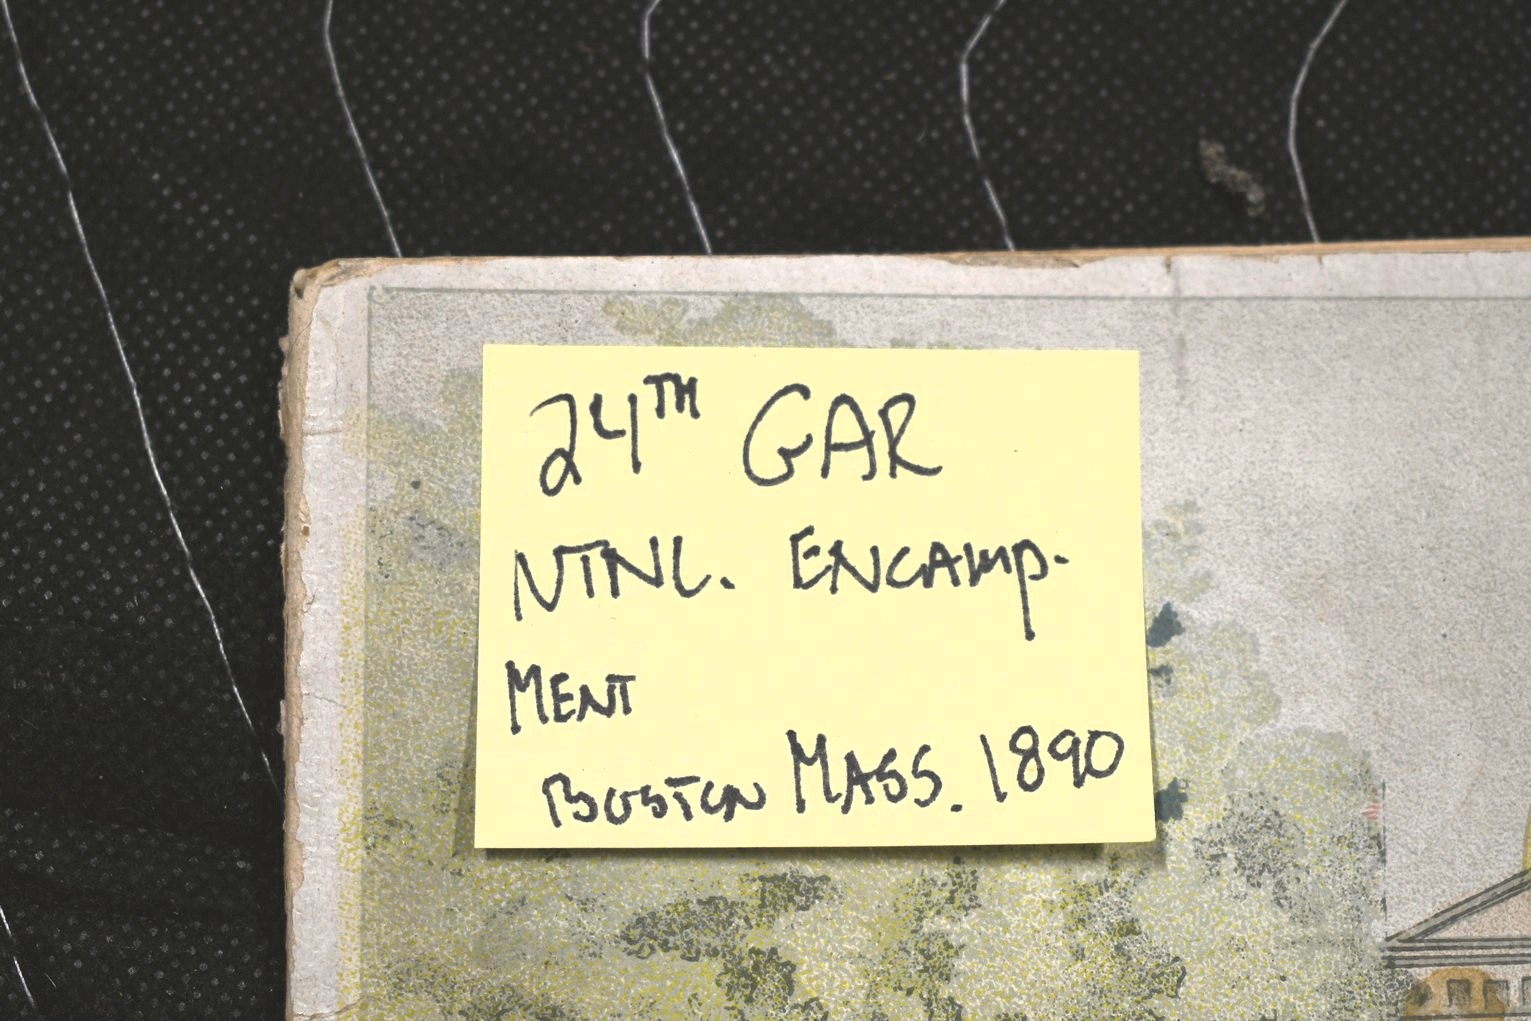 24TH GAR
NTNL. ENCAMP.
MENT
BOSTON MASS. 1890